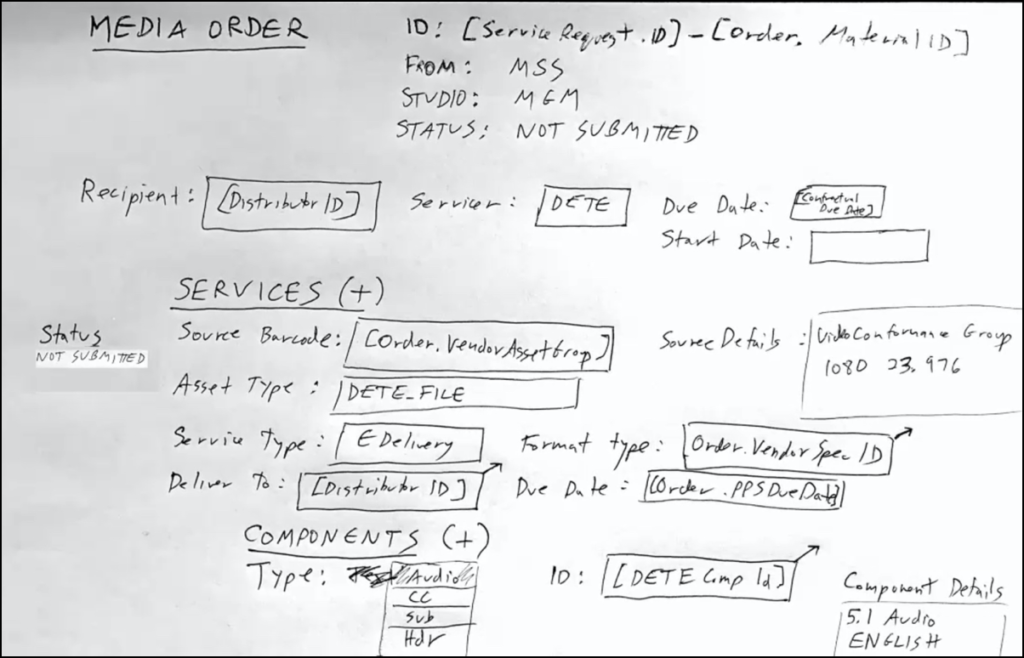 MEDIA ORDER
ID: [Service Request.ID] - [Order. Material ID]
FROM: MSS
STUDIO: MGM
STATUS: NOT SUBMITTED
Recipient: [Distributor ID] Servicer: DETE Due Date: [Contractual Due Date]
Start Date:
SERVICES (+)
Status
NOT SUBMITTED
Source Barcode: [Order.VendorAssetGrop] Source Details: Video Conformance Group
1080 23.976
Asset Type: DETE_FILE
Service Type: EDelivery Format type: Order.Vendor Spec ID
Deliver To: [Distributor ID] Due Date: [Order.PPSDueDate]
COMPONENTS (+)
Type: Audio ID: [DETE Comp Id] Component Details
CC
Sub
Hdr
5.1 Audio
ENGLISH